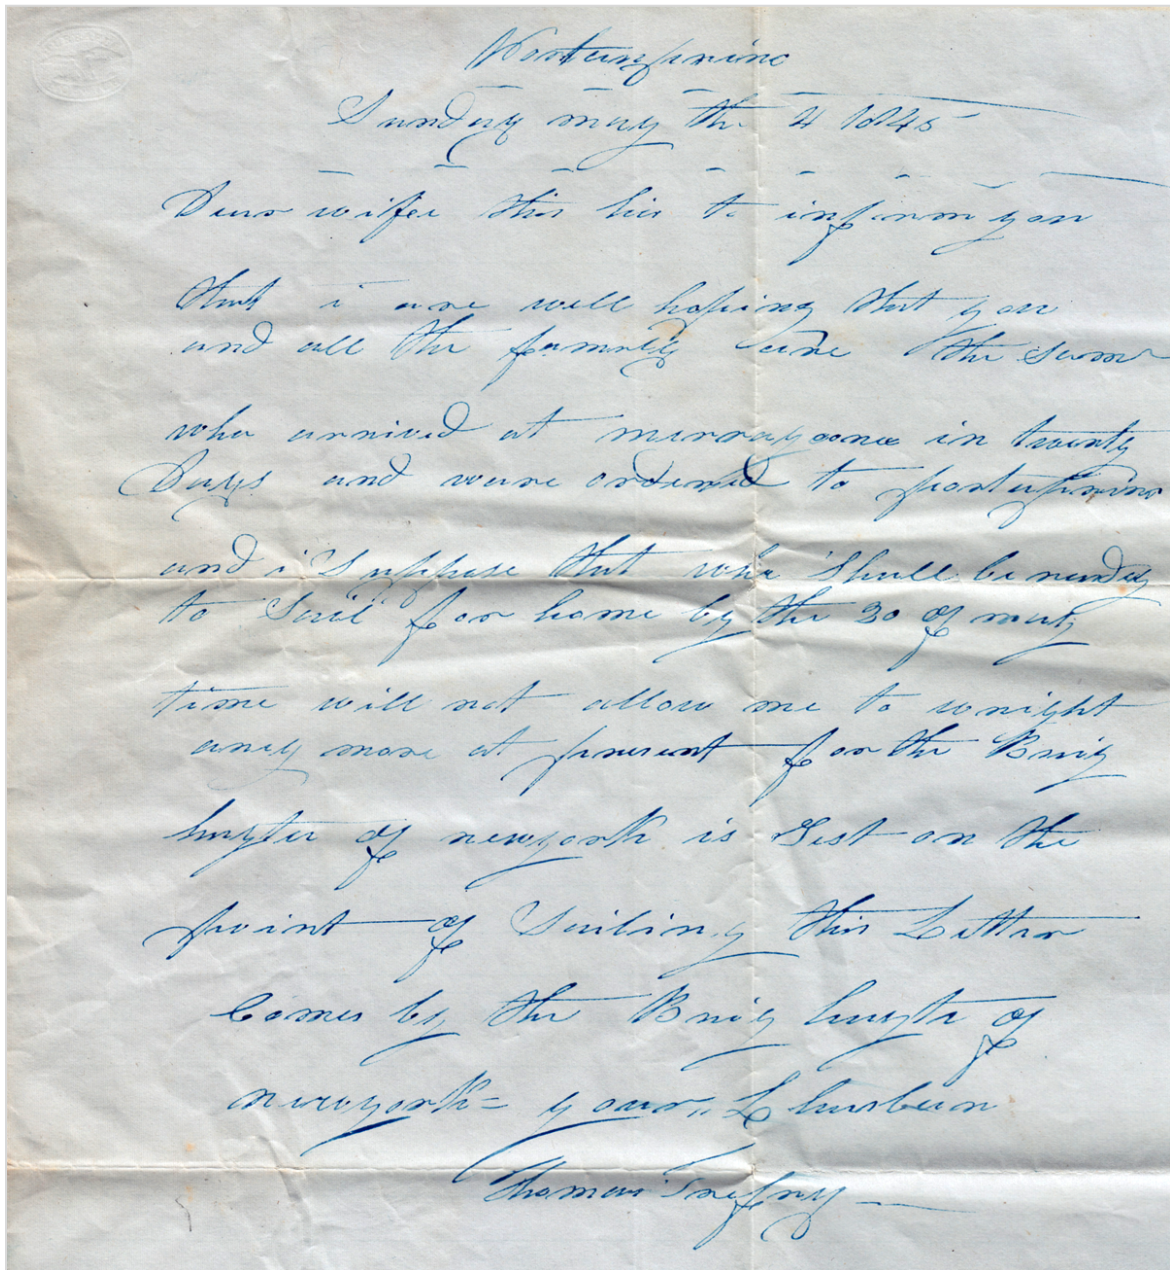 Sunday may the 4 1845
Dear wife this his to inform you
that i are well hoping that you
and all the family are the same
whe arrived at in twenty
Days and ware ordered to
and i Suppose that whe Shall be ready
to Sail for home by the 20 of may
time will not allow me to wright
aney more at present for the Brig
of newyork is Gest on the
point of Sailing this Letter
Comes by the Brig of
newyork = your L husban
Thomas